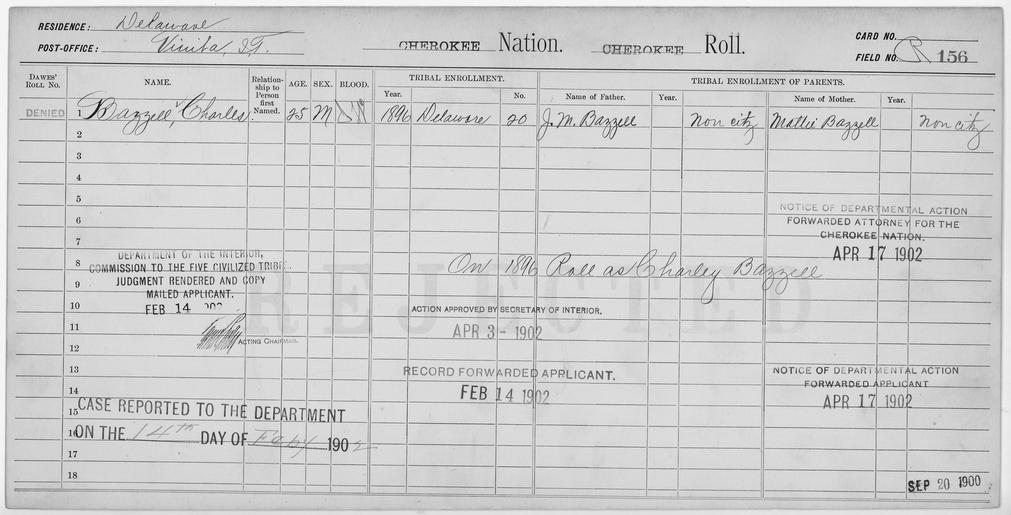 RESIDENCE: Delaware
POST-OFFICE: Vinita, I.T.
CHEROKEE Nation. CHEROKEE Roll.
CARD NO.
FIELD NO. R 156
DAWES' ROLL NO. NAME. Relationship to Person first Named. AGE. SEX. BLOOD. TRIBAL ENROLLMENT. Year. No. TRIBAL ENROLLMENT OF PARENTS. Name of Father. Year. Name of Mother. Year.
DENIED 1 Bazzell, Charles 25 M 1896 Delaware 20 J. M. Bazzell Non citz Mattie Bazzell Non citz
2
3
4
5
6
7
8 On 1896 Roll as Charley Bazzell
9
10
11
12
13
14
15
16
17
18
NOTICE OF DEPARTMENTAL ACTION
FORWARDED ATTORNEY FOR THE
CHEROKEE NATION.
APR 17 1902
DEPARTMENT OF THE INTERIOR,
COMMISSION TO THE FIVE CIVILIZED TRIBES.
JUDGMENT RENDERED AND COPY
MAILED APPLICANT.
FEB 14 1902
ACTING CHAIRMAN.
REJECTED
ACTION APPROVED BY SECRETARY OF INTERIOR.
APR 3 - 1902
RECORD FORWARDED APPLICANT.
FEB 14 1902
NOTICE OF DEPARTMENTAL ACTION
FORWARDED APPLICANT
APR 17 1902
CASE REPORTED TO THE DEPARTMENT
ON THE 14th DAY OF Feby 1902
SEP 20 1900